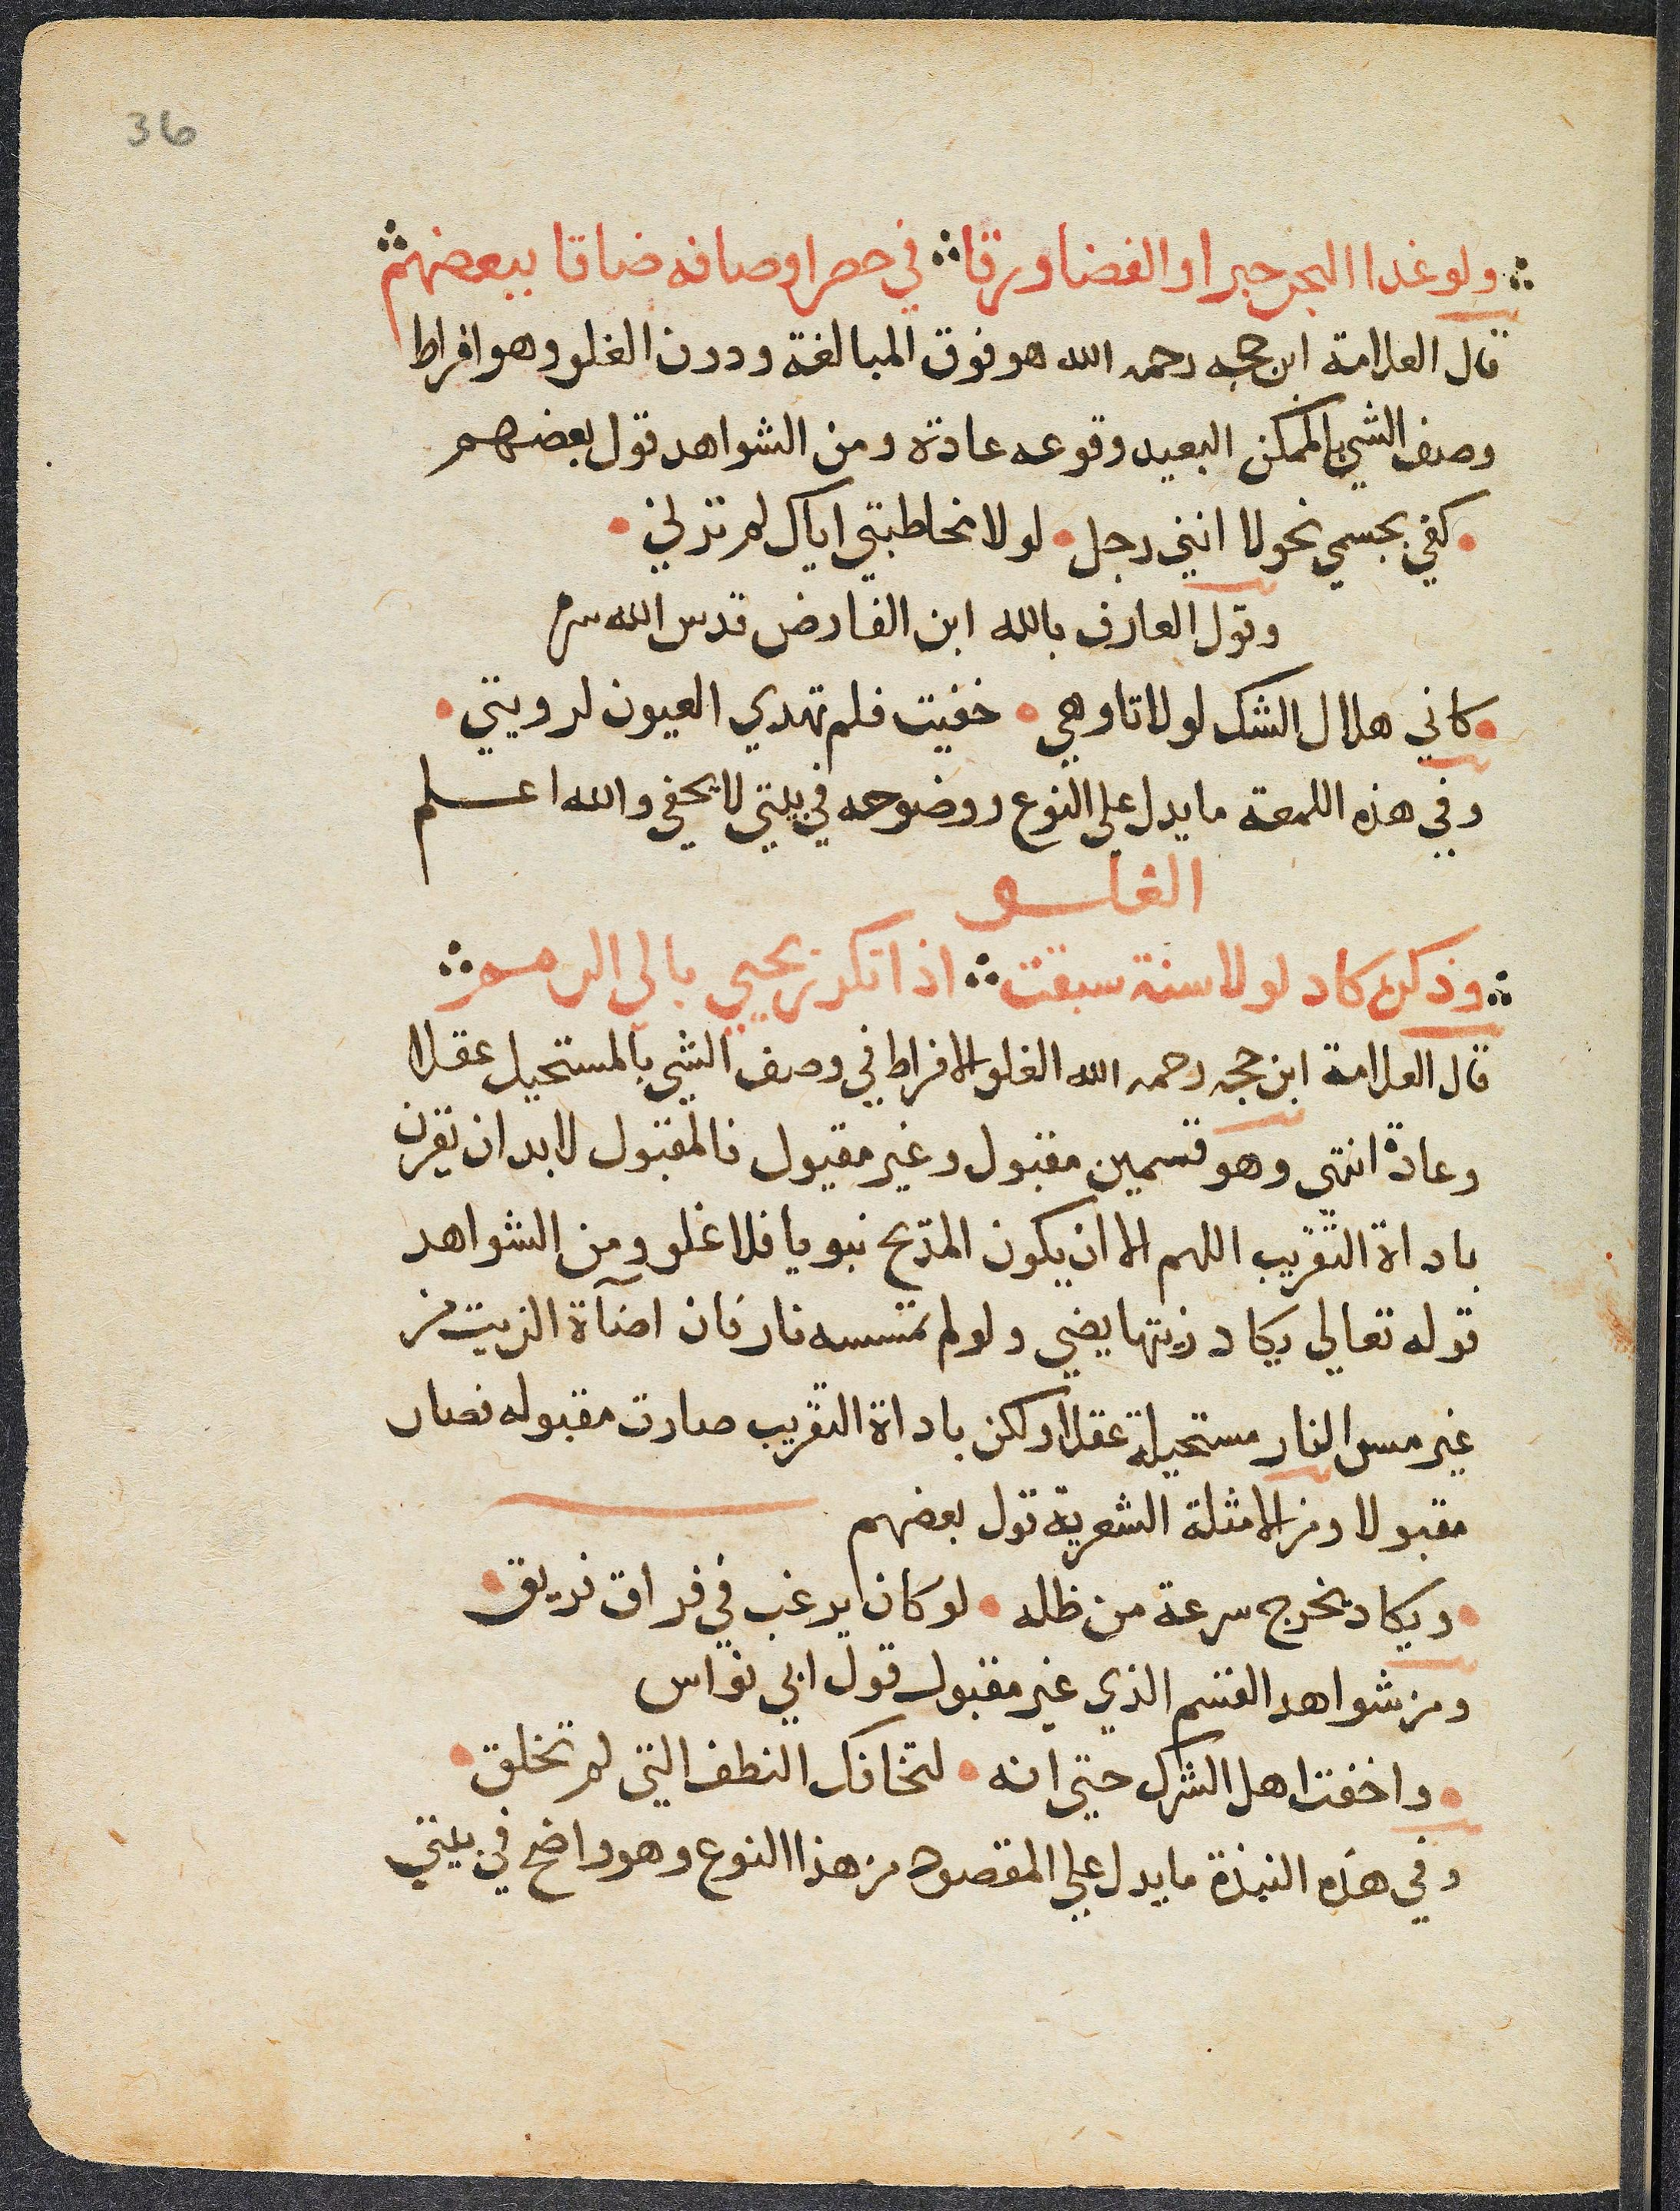 36
ولو غدا البحر حبرا والفضا ورقا في حصر اوصافه ضاقا ببعضهم
قال العلامة ابن حجه رحمه الله هو فوق المبالغة ودون الغلو وهو افراط
وصف الشي بالممكن البعيد وقوعه عادة ومن الشواهد قول بعضهم
كفي بجسمي نحولا انني رجل لولا مخاطبتي اياك لم ترني
وقول العارف بالله ابن الفارض قدس الله سره
كاني هلال الشك لولا تاوهي خفيت فلم تهدي العيون لرويتي
وفي هذه اللمعة ما يدل علي النوع ووضوحه في بيتي لا يخفي والله اعلم
الغلو
وذكره كاد لولا سنة سبقت اذا تكرر يحيي بالي الرمم
قال العلامة ابن حجه رحمه الله الغلو الافراط في وصف الشي بالمستحيل عقلا
وعادة انتهي وهو قسمين مقبول وغير مقبول فالمقبول لا بد ان تقرن
باداة التقريب اللهم الا ان يكون المديح نبويا فلا غلو ومن الشواهد
قوله تعالي يكاد زيتها يضي ولو لم تمسسه نار فان اضآة الزيت من
غير مس النار مستحيلة عقلا ولكن باداة التقريب صارت مقبوله فصار
مقبولا ومن الامثلة الشعرية قول بعضهم
ويكاد يخرج سرعة من ظله لو كان يرغب في فراق فريق
ومن شواهد القسم الذي غير مقبول قول ابي نواس
واخفت اهل الشرك حتي انه لتخافك النطف التي لم تخلق
وفي هذه النبذة ما يدل علي المقصود من هذا النوع وهو واضح في بيتي